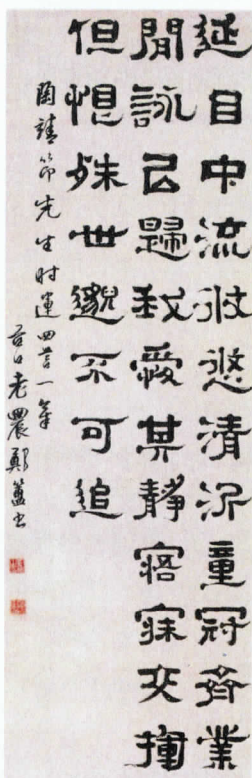 延目中流攸悠清沂童冠齊業
閒詠㠯歸我愛其靜寤寐交揮
但恨殊世邈不可追
陶靖節先生時運四言一章
谷口老農鄭簠書